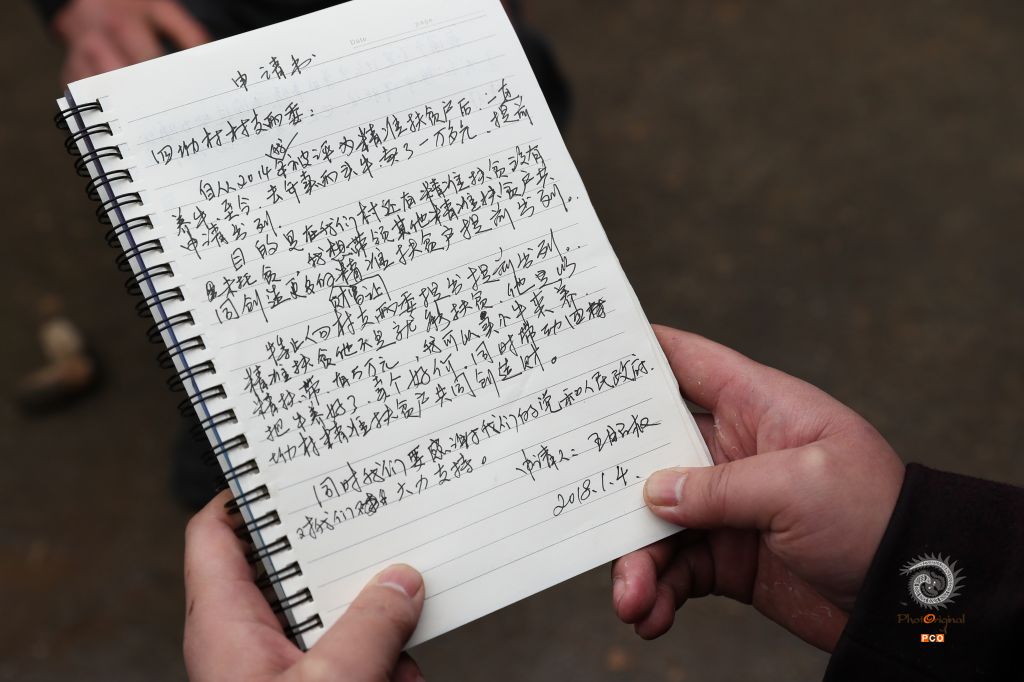 Date
page
申请书
四坳村村支两委:
自从2014年被评为精准扶贫户后,一直
养牛,至今,去年卖两头牛,卖了一万多元,提前
申请出列.
目的是在我们村还有精准扶贫没有
脱贫,我想带领其他精准扶贫户共
同创造更多的财富让精准扶贫户提前出列。
特此向四村支两委提出提前出列。
精准扶贫他不是扶贫,他是
精扶,带有5万元,我可以多个牛卖,养
把牛养好了,卖个好价,同时带动四
坳村精准扶贫户共同创造财。
同时我们要感谢我们的党和人民政府.
对我们大力支持。
申请人:
2018.1.4.
PhotOriginal
PCO